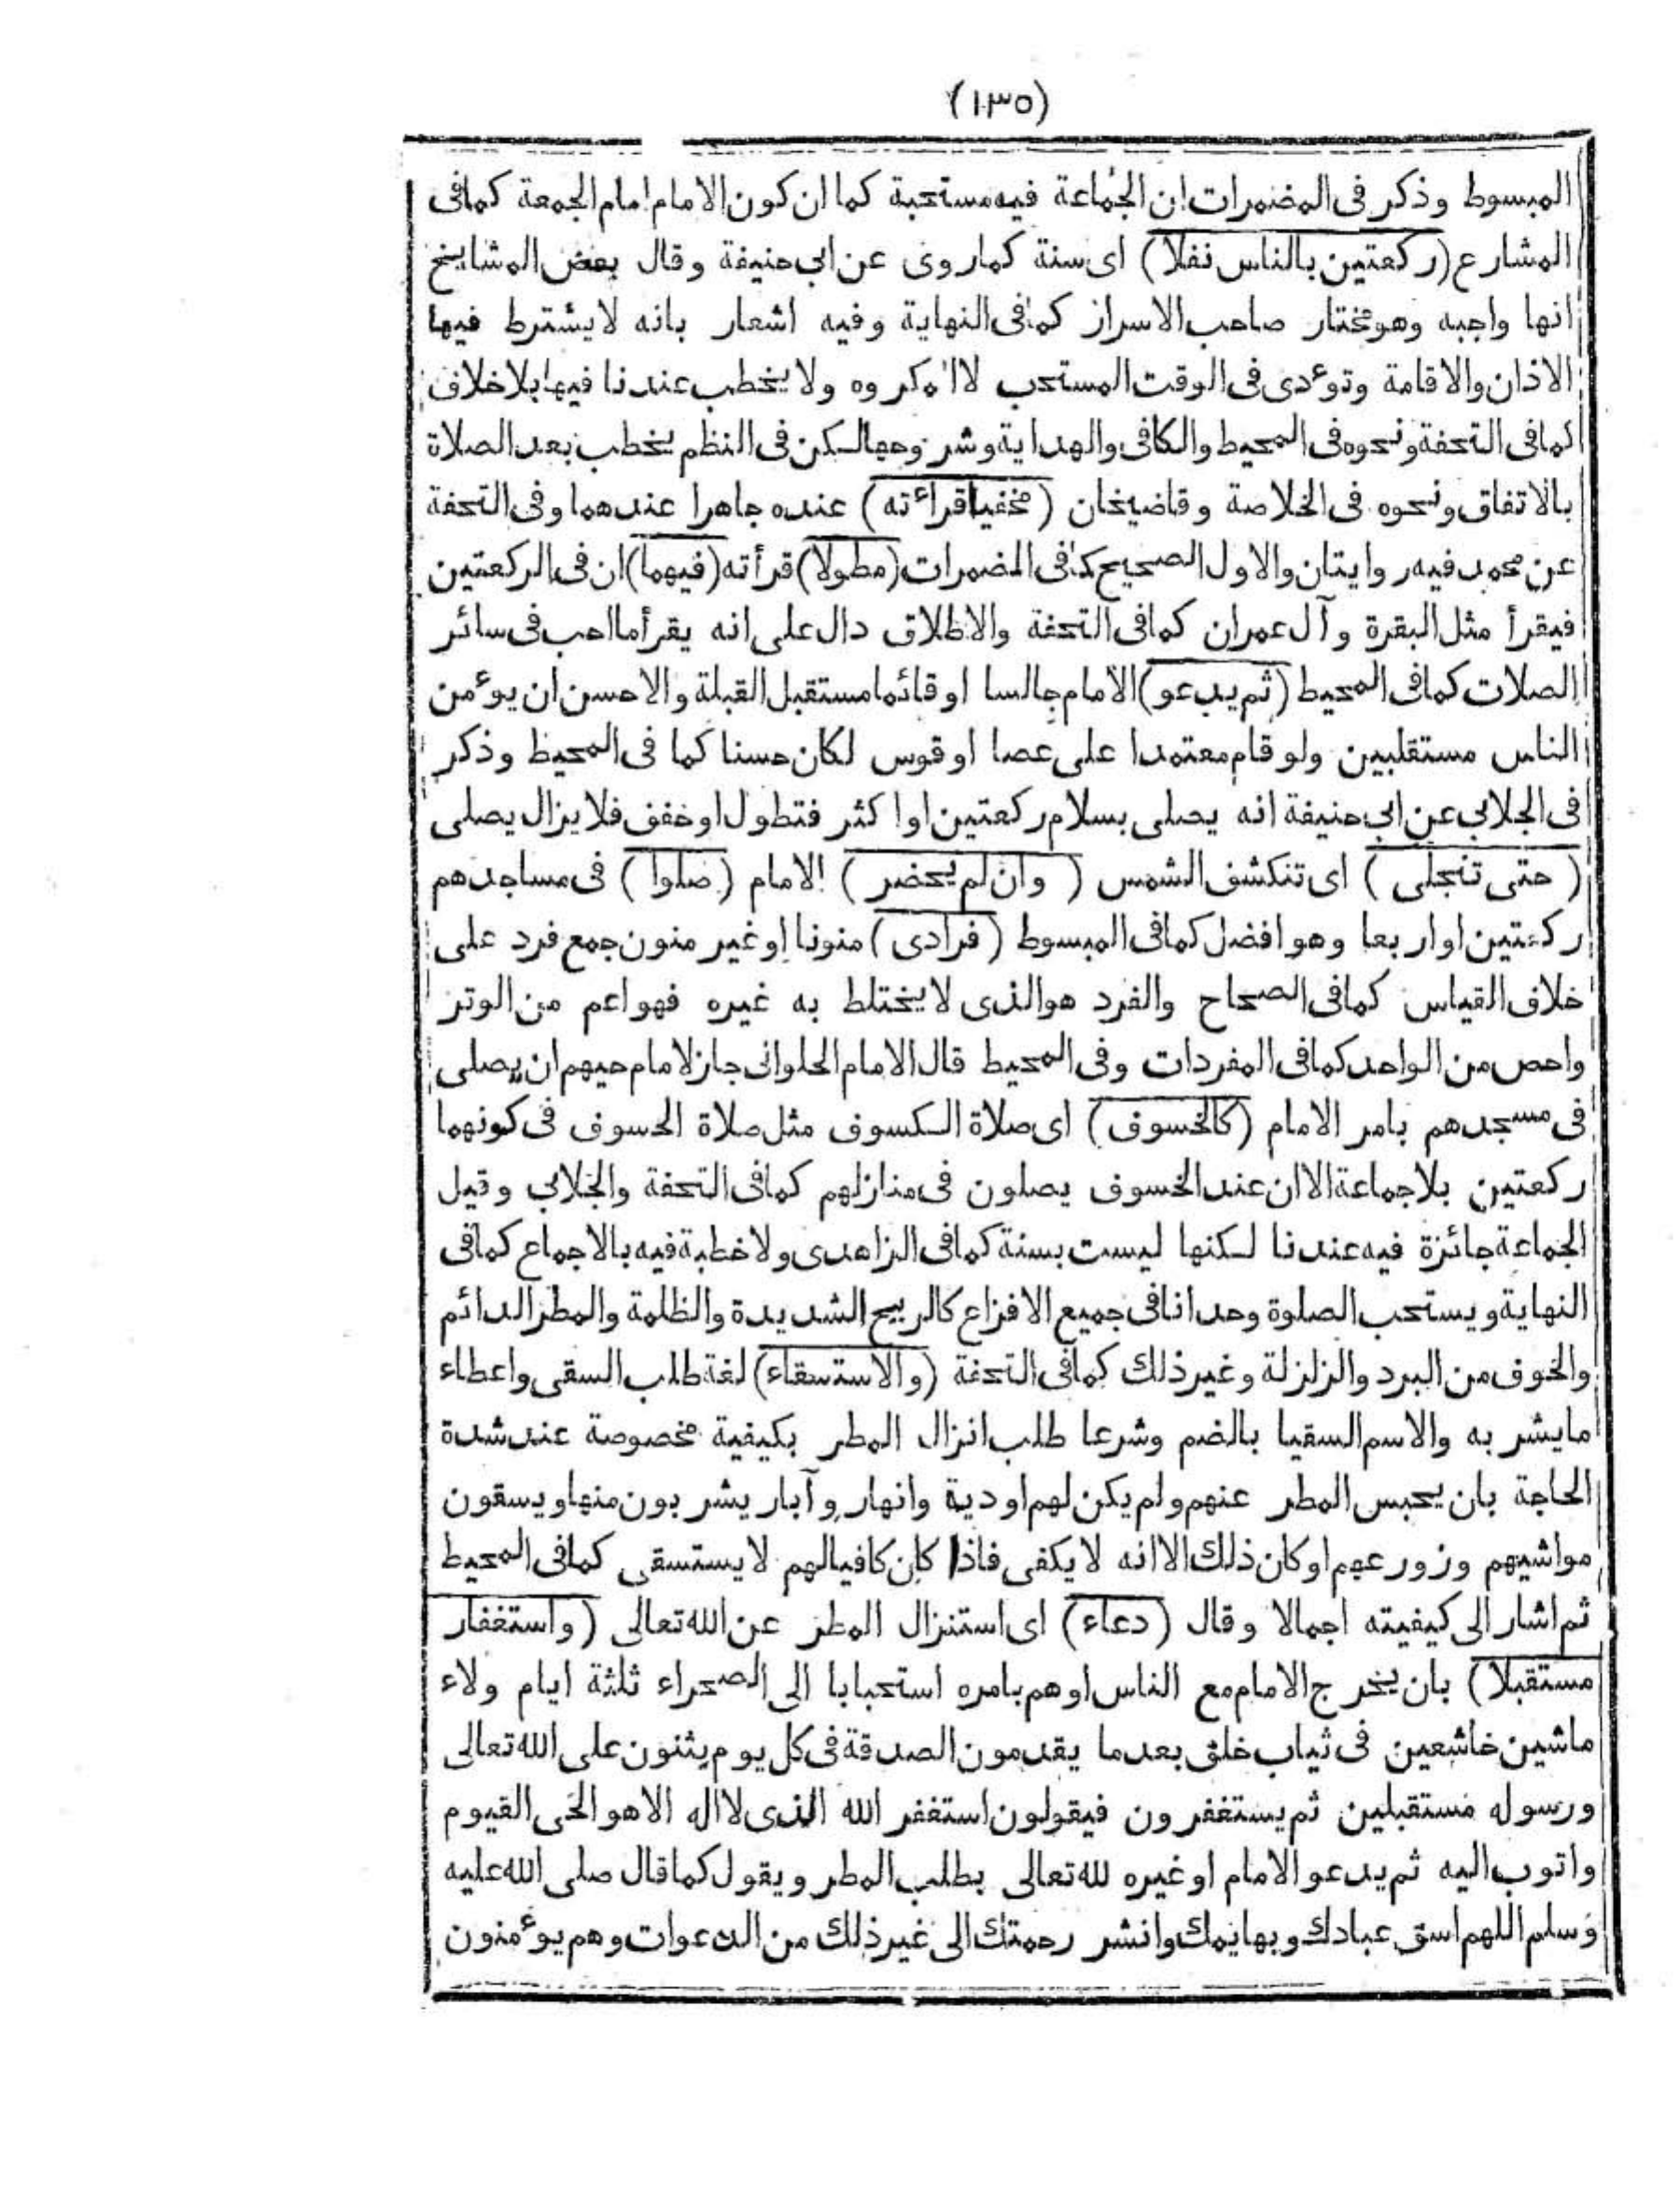 (١٣٥)
المبسوط وذكر فى المضمرات ان الجماعة فيه مستحبة كما ان كون الامام امام الجمعة كمافى
المشارع (ركعتين بالناس نفلا) اى سنة كماروى عن ابى حنيفة وقال بعض المشايخ
انها واجبه وهو مختار صاحب الاسرار كمافى النهاية وفيه اشعار بانه لايشترط فيها
الاذان والاقامة وتوءدى فى الوقت المستحب لاالمكروه ولايخطب عندنا فيها بلاخلاف
كمافى التحفة ونحوه فى المحيط والكافى والهداية وشروحها لكن فى النظم يخطب بعد الصلاة
بالاتفاق ونحوه فى الخلاصة وقاضيخان (مخفيا قراءته) عنده جاهرا عندهما وفى التحفة
عن محمد فيه روايتان والاول الصحيح كمافى المضمرات (مطولا) قرأته (فيهما) ان فى الركعتين
فيقرأ مثل البقرة وآل عمران كمافى التحفة والاطلاق دال على انه يقرأ مااحب فى سائر
الصلات كمافى المحيط (ثم يدعو) الامام جالسا اوقائما مستقبل القبلة والاحسن ان يوءمن
الناس مستقلبين ولوقام معتمدا على عصا اوقوس لكان حسنا كما فى المحيظ وذكر
فى الجلابى عن ابى حنيفة انه يصلى بسلام ركعتين اواكثر فتطول اوخفف فلايزال يصلى
(حتى تنجلى) اى تنكشف الشمس (وان لم يحضر) الامام (صلوا) فى مساجدهم
ركعتين اواربعا وهوافضل كمافى المبسوط (فرادى) منونا اوغير منون جمع فرد على
خلاف القياس كمافى الصحاح والفرد هوالذى لايختلط به غيره فهواعم من الوتر
واحص من الواحد كمافى المفردات وفى المحيط قال الامام الحلوانى جاز لامام حيهم ان يصلى
فى مسجدهم بامر الامام (كالخسوف) اى صلاة الكسوف مثل صلاة الخسوف فى كونهما
ركعتين بلاجماعة الاان عند الخسوف يصلون فى منازلهم كمافى التحفة والجلابى وقيل
الجماعة جائزة فيه عندنا لكنها ليست بسنة كمافى الزاهدى ولاخطبة فيه بالاجماع كمافى
النهاية ويستحب الصلوة وحدانا فى جميع الافزاع كالريح الشديدة والظلمة والمطر الدائم
والخوف من البرد والزلزلة وغيرذلك كمافى التحفة (والاستسقاء) لغة طلب السقى واعطاء
مايشر به والاسم السقيا بالضم وشرعا طلب انزال المطر بكيفية مخصوصة عند شدة
الحاجة بان يحبس المطر عنهم ولم يكن لهم اودية وانهار وآبار يشربون منها ويسقون
مواشيهم وزورعهم اوكان ذلك الاانه لايكفى فاذا كان كافيالهم لايستسقى كمافى المحيط
ثم اشار الى كيفيته اجمالا وقال (دعاء) اى استنزال المطر عن الله تعالى (واستغفار
مستقبلا) بان يخرج الامام مع الناس اوهم بامره استحبابا الى الصحراء ثلثة ايام ولاء
ماشين خاشعين فى ثياب خلق بعدما يقدمون الصدقة فى كل يوم يثنون على الله تعالى
ورسوله مستقبلين ثم يستغفرون فيقولون استغفر الله الذى لااله الاهو الحى القيوم
واتوب اليه ثم يدعو الامام اوغيره لله تعالى بطلب المطر ويقول كماقال صلى الله عليه
وسلم اللهم اسق عبادك وبهايمك وانشر رحمتك الى غيرذلك من الدعوات وهم يوءمنون